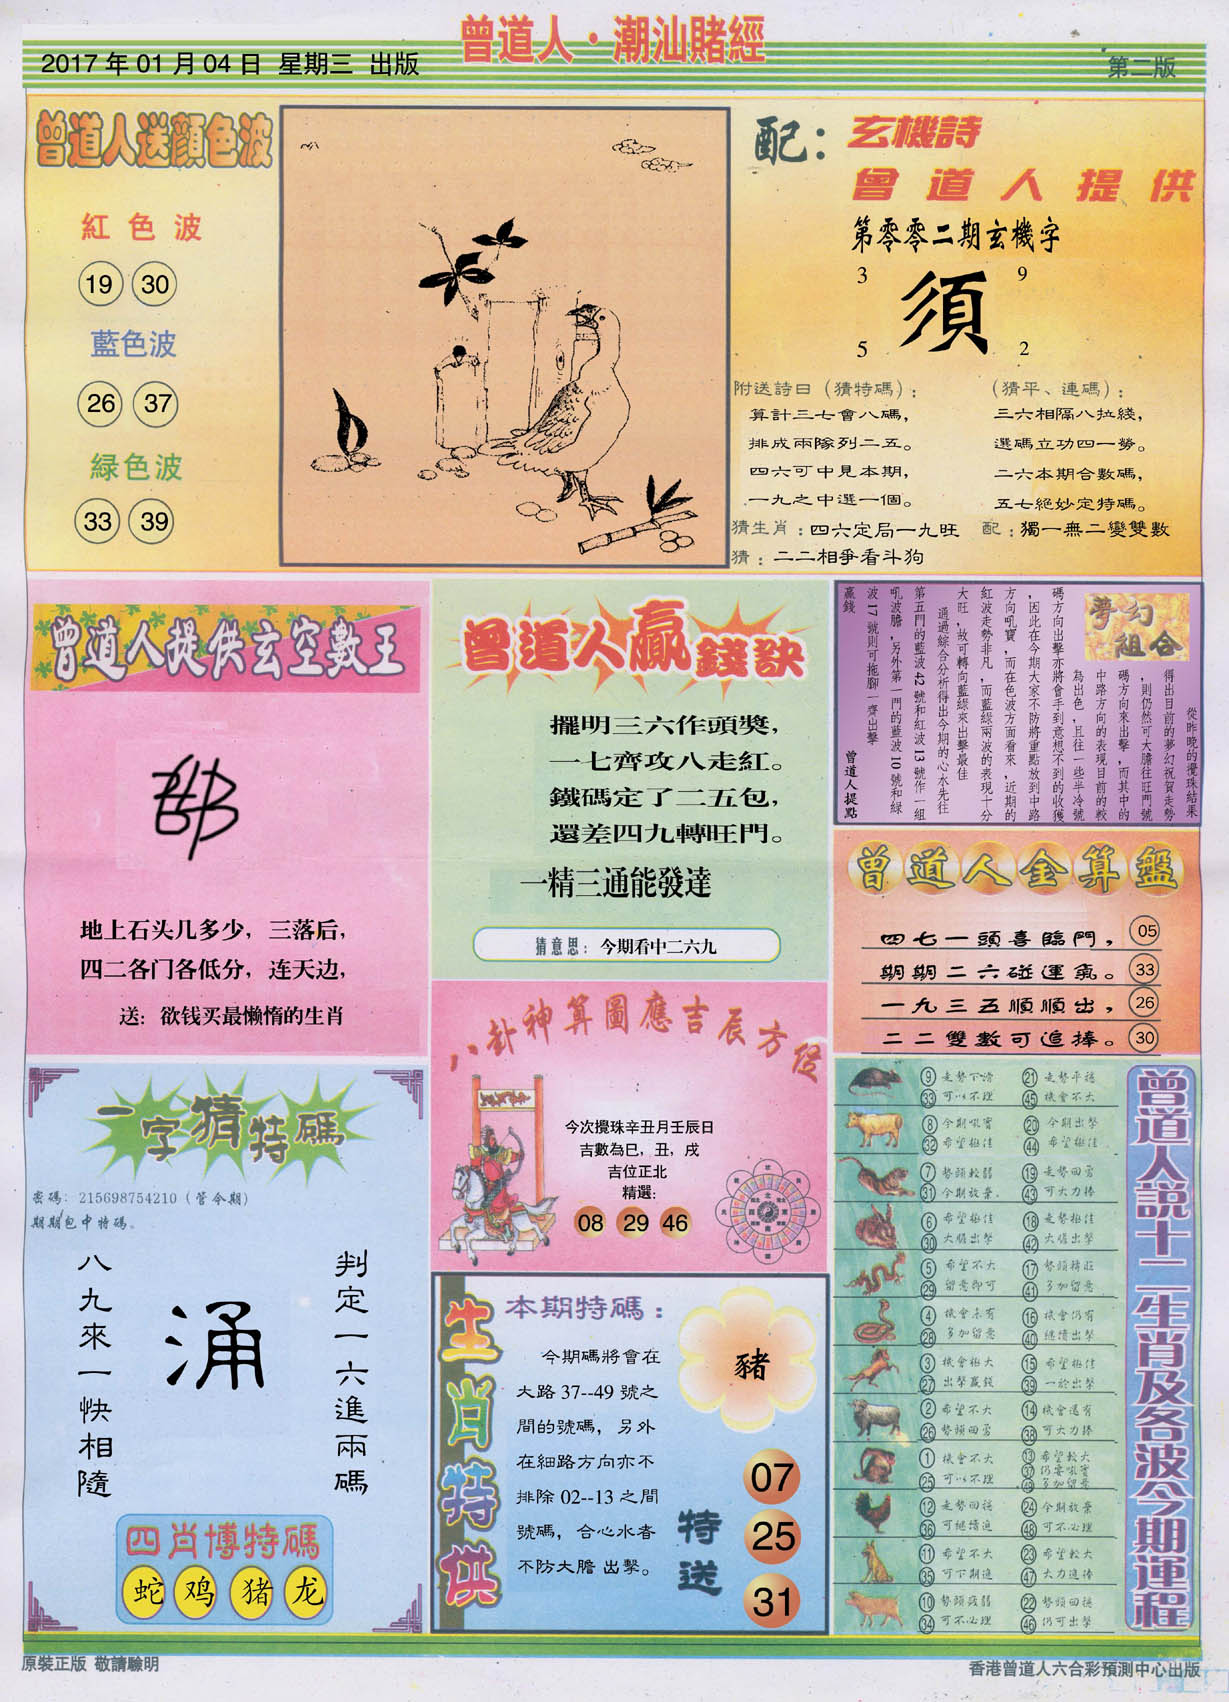 曾道人·潮汕賭經
2017年01月04日 星期三 出版
第二版
曾道人送顔色波
紅色波
19 30
藍色波
26 37
緑色波
33 39
配：玄機詩
曾道人提供
第零零二期玄機字
3 9
須
5 2
附送詩曰（猜特碼）：
算計三七會八碼，
排成兩隊列二五。
四六可中見本期，
一九之中選一個。
（猜平、連碼）：
三六相隔八拉綫，
選碼立功四一勞。
二六本期合數碼，
五七絕妙定特碼。
猜生肖：四六定局一九旺 配：獨一無二變雙數
猜：二二相爭看斗狗
曾道人提供玄空數王
地上石头几多少，三落后，
四二各门各低分，连天边，
送：欲钱买最懒惰的生肖
曾道人贏錢訣
擺明三六作頭獎，
一七齊攻八走紅。
鐵碼定了二五包，
還差四九轉旺門。
一精三通能發達
猜意思：今期看中二六九
夢幻組合
從昨晚的攪珠結果
得出目前的夢幻祝賀走勢
，則仍然可大膽往旺門號
碼方向來出擊，而其中的
中路方向的表現目前的較
為出色，且往一些半冷號
碼方向出擊亦將會手到意想不到的收獲
，因此在今期大家不防將重點放到中路
方向吼寶，而在色波方面看來，近期的
紅波走勢非凡，而藍緑兩波的表現十分
大旺，故可轉向藍緑來出擊最佳
通過綜合分析得出今期的心水先往
第五門的藍波42號和紅波13號作一組
吼波膽，另外第一門的藍波10號和緑
波17號則可拖脚一齊出擊
贏錢
曾道人提點
曾道人金算盤
四七一頭喜臨門， 05
期期二六碰運氣。 33
一九三五順順出， 26
二二雙數可追捧。 30
八卦神算圖應吉辰方位
今次攪珠辛丑月壬辰日
吉數為巳，丑，戌
吉位正北
精選：
08 29 46
一字猜特碼
密碼：215698754210（管令期）
期期包中特碼。
判定一六進兩碼
涌
八九來一快相隨
四肖博特碼
蛇 鸡 猪 龙
生肖特供
本期特碼：
今期碼將會在
大路37--49號之
間的號碼，另外
在細路方向亦不
排除02--13之間
號碼，合心水者
不防大膽出擊。
豬
特送
07
25
31
曾道人説十二生肖及各波今期運程
9 走勢下滑 21 走勢平穩
33 可以不理 45 機會不大
8 今期吼實 20 今期出擊
32 希望極佳 44 希望極佳
7 勢頭較弱 19 走勢回勇
31 今期放棄。 43 可大力捧
6 希望極佳 18 走勢極佳
30 大膽出擊 42 大膽出擊
5 希望不大 17 勢頭轉旺
29 留意即可 41 多加留意
4 機會未有 16 機會仍有
28 多加留意 40 繼續出擊
3 機會極大 15 希望極佳
27 出擊贏錢 39 一於出擊
2 希望不大 14 機會還有
26 勢頭回勇 38 可大力捧
1 機會不大 13 希望較大
25 可以不理 37 仍要吼實
49 多加留意
12 走勢回穩 24 今期放棄
36 可繼續追 48 可不必理
11 希望不大 23 希望較大
35 可下期追 47 大力追捧
10 勢頭疲弱 22 勢頭回穩
34 可不必理 46 仍可出擊
原裝正版 敬請驗明
香港曾道人六合彩預測中心出版